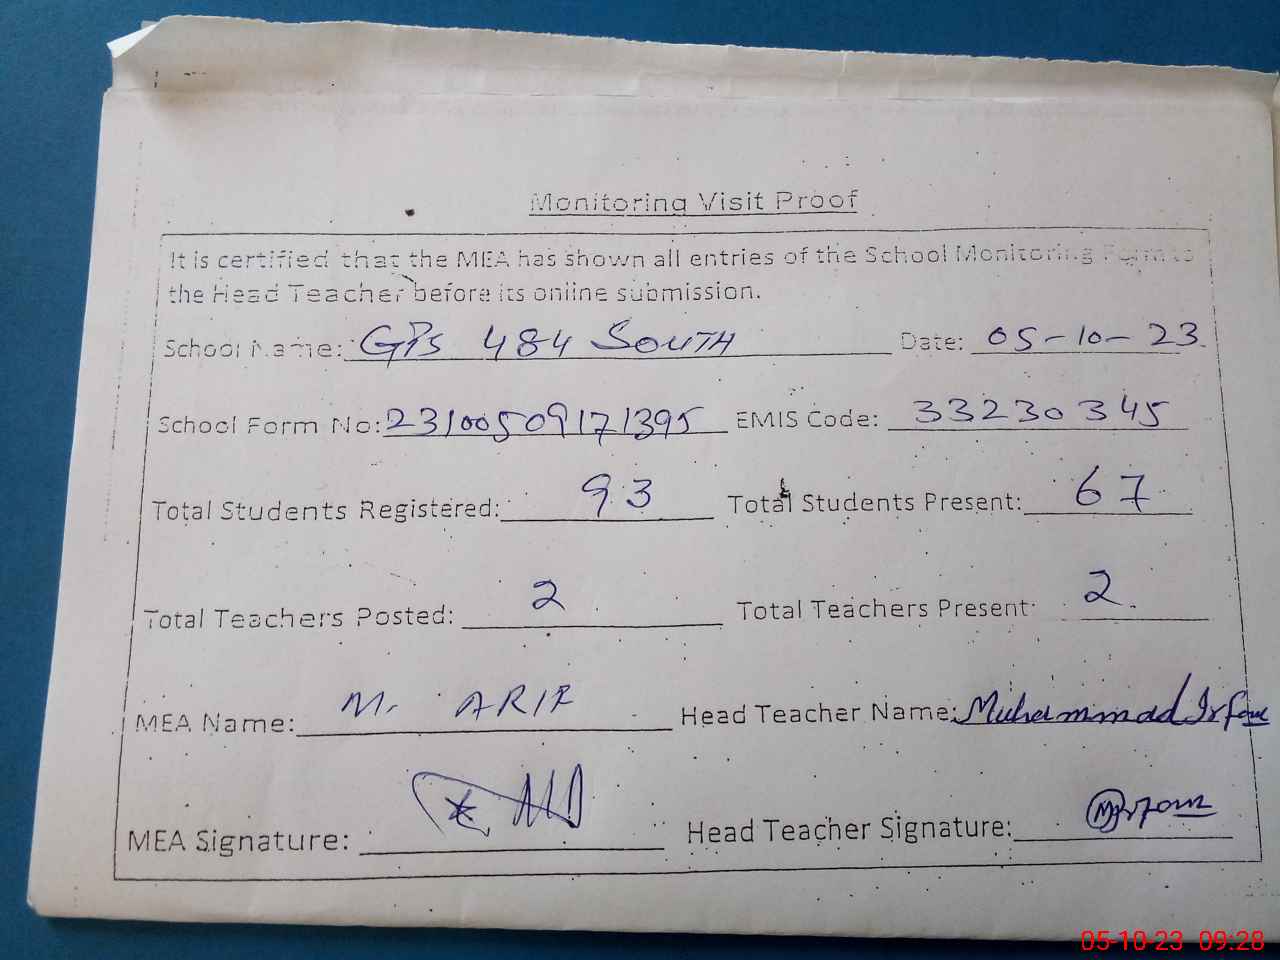 Monitoring Visit Proof
It is certified that the MEA has shown all entries of the School Monitoring Form to
the Head Teacher before its online submission.
School Name: GPS 484 SOUTH Date: 05-10-23
School Form No: 23100509171395 EMIS Code: 33230345
Total Students Registered: 93 Total Students Present: 67
Total Teachers Posted: 2 Total Teachers Present: 2
MEA Name: M. ARIF Head Teacher Name: Muhammad Irfan
MEA Signature: Head Teacher Signature:
05-10-23 09:28